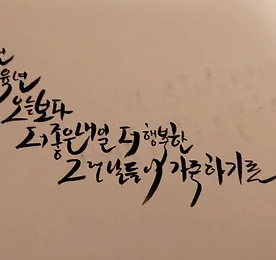 육년
오늘보다
더 좋은 내일 더 행복한
그런 날들이 가득하기를